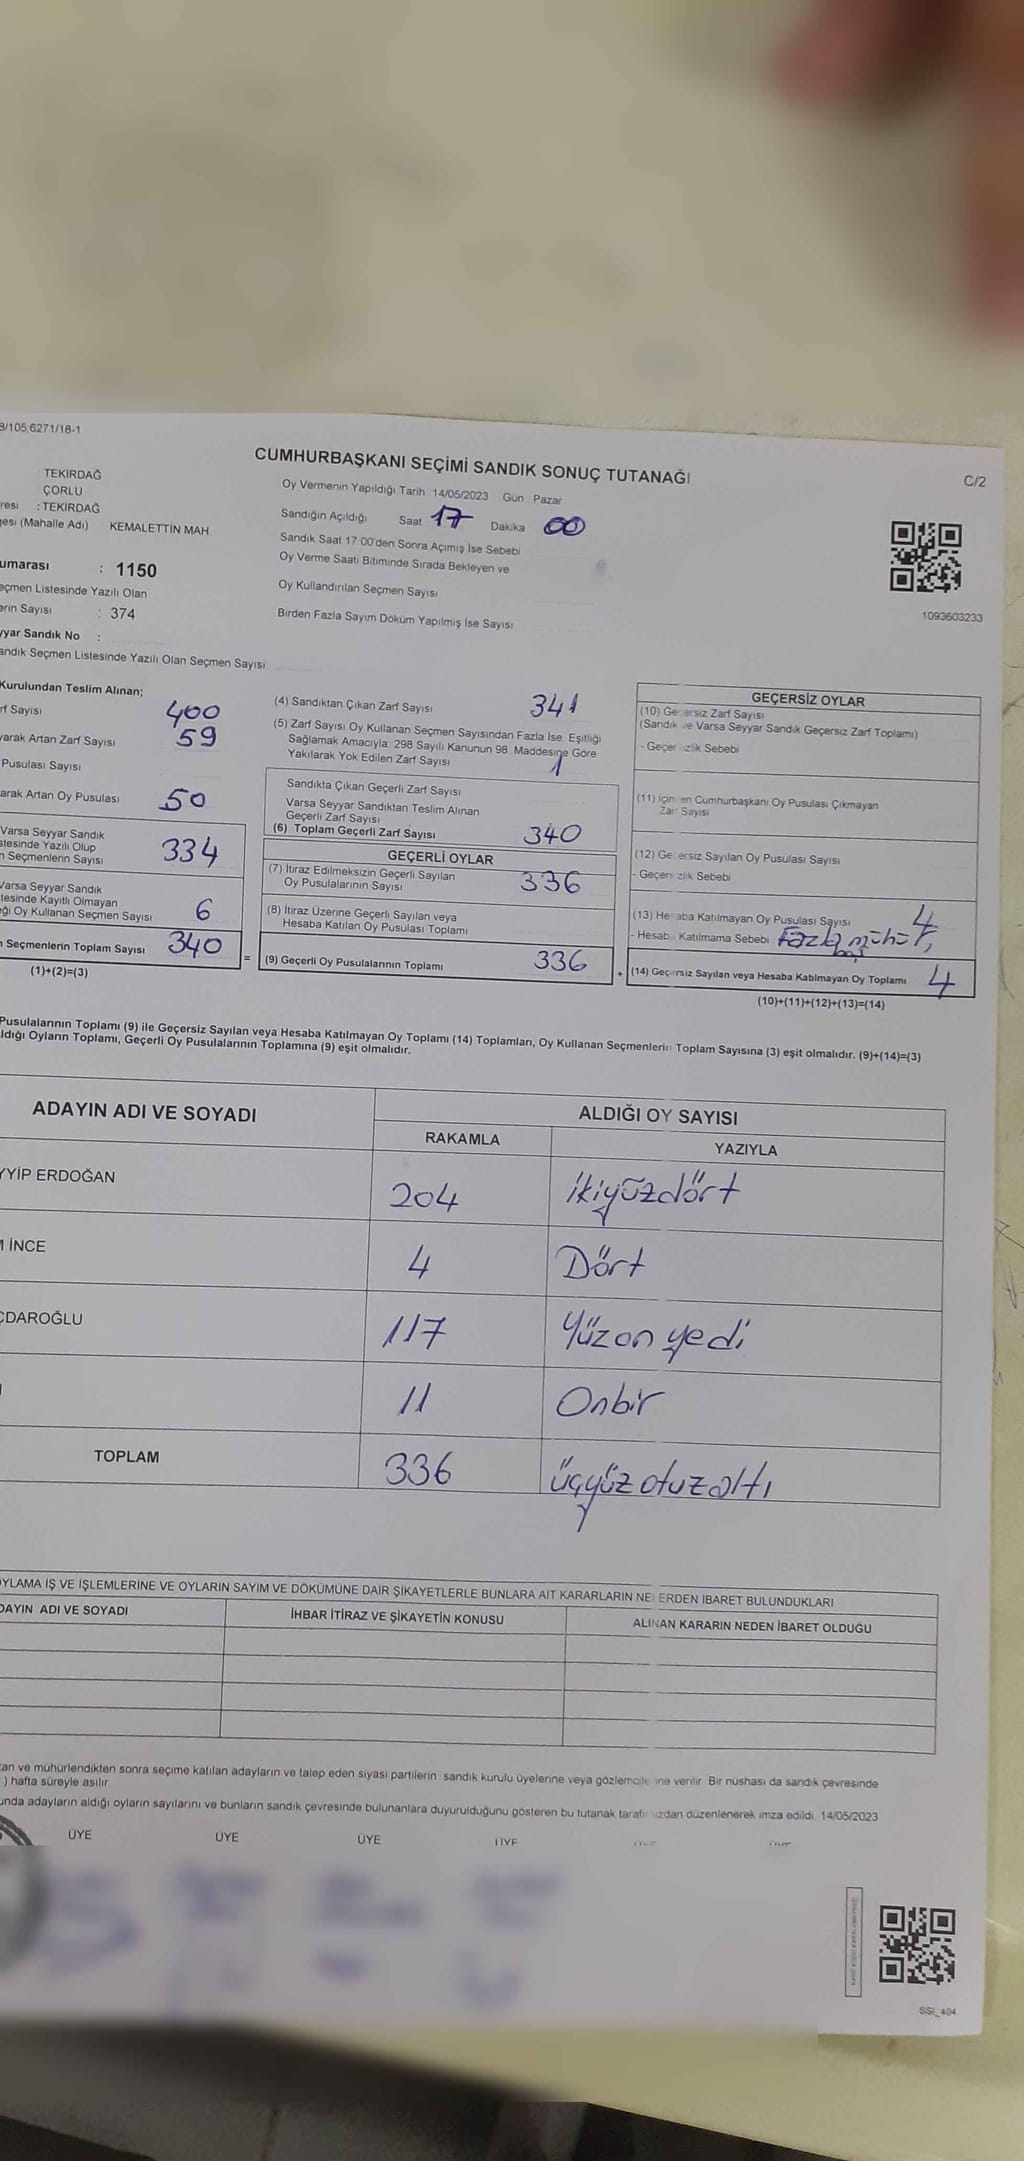 8/105,6271/18-1
CUMHURBAŞKANI SEÇİMİ SANDIK SONUÇ TUTANAĞI
C/2
TEKİRDAĞ
ÇORLU
resi : TEKİRDAĞ
gesi (Mahalle Adı) KEMALETTİN MAH.
umarası : 1150
eçmen Listesinde Yazılı Olan
erin Sayısı : 374
yyar Sandık No :
andık Seçmen Listesinde Yazılı Olan Seçmen Sayısı
Oy Vermenin Yapıldığı Tarih 14/05/2023 Gün Pazar
Sandığın Açıldığı Saat 17 Dakika 00
Sandık Saat 17:00'den Sonra Açımış İse Sebebi
Oy Verme Saati Bitiminde Sırada Bekleyen ve
Oy Kullandırılan Seçmen Sayısı
Birden Fazla Sayım Döküm Yapılmış İse Sayısı
1093603233
Kurulundan Teslim Alınan;
rf Sayısı 400
arak Artan Zarf Sayısı 59
Pusulası Sayısı
arak Artan Oy Pusulası 50
Varsa Seyyar Sandık
stesinde Yazılı Olup
n Seçmenlerin Sayısı 334
Varsa Seyyar Sandık
tesinde Kayıtlı Olmayan
eği Oy Kullanan Seçmen Sayısı 6
n Seçmenlerin Toplam Sayısı 340
(1)+(2)=(3)
(4) Sandıktan Çıkan Zarf Sayısı 341
(5) Zarf Sayısı Oy Kullanan Seçmen Sayısından Fazla İse, Eşitliği
Sağlamak Amacıyla, 298 Sayılı Kanunun 98. Maddesine Göre
Yakılarak Yok Edilen Zarf Sayısı 1
Sandıkta Çıkan Geçerli Zarf Sayısı
Varsa Seyyar Sandıktan Teslim Alınan
Geçerli Zarf Sayısı
(6) Toplam Geçerli Zarf Sayısı 340
GEÇERLİ OYLAR
(7) İtiraz Edilmeksizin Geçerli Sayılan
Oy Pusulalarının Sayısı 336
(8) İtiraz Üzerine Geçerli Sayılan veya
Hesaba Katılan Oy Pusulası Toplamı
= (9) Geçerli Oy Pusulalarının Toplamı 336
GEÇERSİZ OYLAR
(10) Geçersiz Zarf Sayısı
(Sandık ve Varsa Seyyar Sandık Geçersiz Zarf Toplamı)
- Geçersizlik Sebebi
(11) İçinden Cumhurbaşkanı Oy Pusulası Çıkmayan
Zarf Sayısı
(12) Geçersiz Sayılan Oy Pusulası Sayısı
- Geçersizlik Sebebi
(13) Hesaba Katılmayan Oy Pusulası Sayısı 4
- Hesaba Katılmama Sebebi Fazla mühür,
+ (14) Geçersiz Sayılan veya Hesaba Katılmayan Oy Toplamı 4
(10)+(11)+(12)+(13)=(14)
Pusulalarının Toplamı (9) ile Geçersiz Sayılan veya Hesaba Katılmayan Oy Toplamı (14) Toplamları, Oy Kullanan Seçmenlerin Toplam Sayısına (3) eşit olmalıdır. (9)+(14)=(3)
ldığı Oyların Toplamı, Geçerli Oy Pusulalarının Toplamına (9) eşit olmalıdır.
ADAYIN ADI VE SOYADI
ALDIĞI OY SAYISI
RAKAMLA YAZIYLA
YYİP ERDOĞAN 204 ikiyüzdört
M İNCE 4 Dört
ÇDAROĞLU 117 Yüzonyedi
11 Onbir
TOPLAM 336 üçyüzotuzaltı
OYLAMA İŞ VE İŞLEMLERİNE VE OYLARIN SAYIM VE DÖKÜMÜNE DAİR ŞİKAYETLERLE BUNLARA AİT KARARLARIN NELERDEN İBARET BULUNDUKLARI
DAYIN ADI VE SOYADI İHBAR İTİRAZ VE ŞİKAYETİN KONUSU ALINAN KARARIN NEDEN İBARET OLDUĞU
an ve mühürlendikten sonra seçime katılan adayların ve talep eden siyasi partilerin sandık kurulu üyelerine veya gözlemcilerine verilir. Bir nüshası da sandık çevresinde
) hafta süreyle asılır.
unda adayların aldığı oyların sayılarını ve bunların sandık çevresinde bulunanlara duyurulduğunu gösteren bu tutanak tarafımızdan düzenlenerek imza edildi. 14/05/2023
ÜYE ÜYE ÜYE ÜYE
SSİ_404